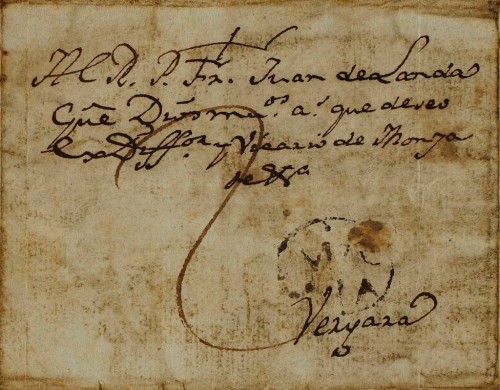 Al R. P. Fr. Juan de Landa
Gue Dios m. a.s que deseo
Ex Diff.or y Vicario de Monja
de
Vergara